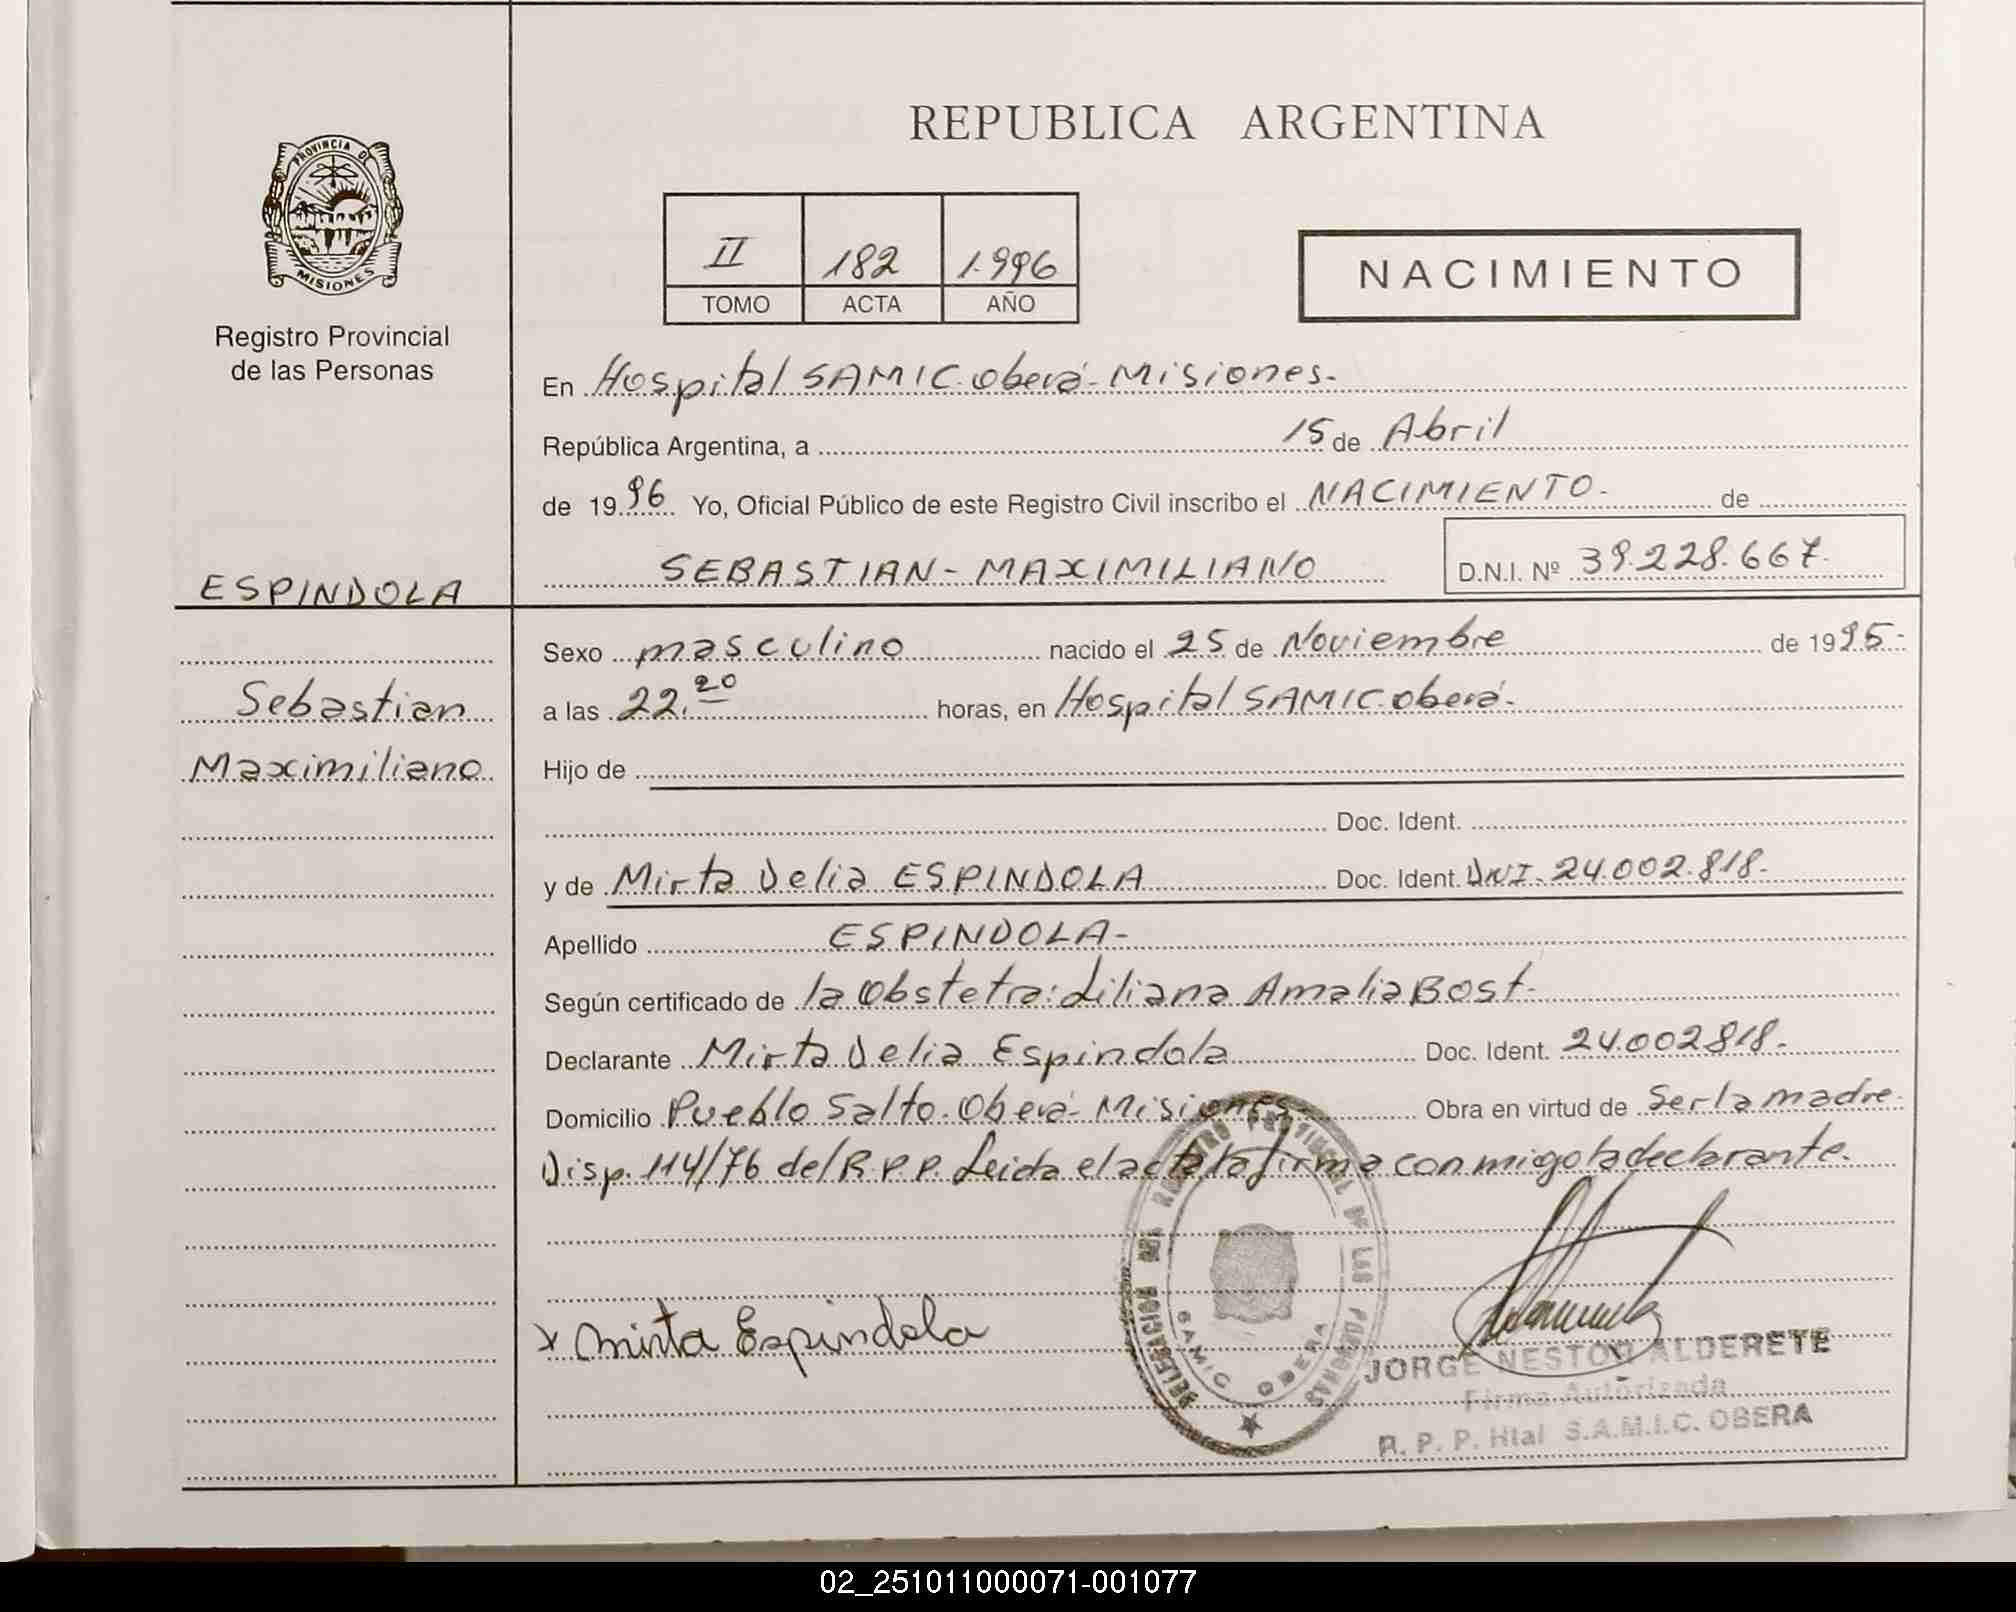 REPUBLICA ARGENTINA
PROVINCIA DE
MISIONES
Registro Provincial
de las Personas
II 182 1.996
TOMO ACTA AÑO
NACIMIENTO
En Hospital SAMIC. Oberá - Misiones.
República Argentina, a 15 de Abril
de 1996 Yo, Oficial Público de este Registro Civil inscribo el NACIMIENTO. de
SEBASTIAN - MAXIMILIANO D.N.I. Nº 39.228.667.
ESPINDOLA
Sebastian
Maximiliano
Sexo masculino nacido el 25 de Noviembre de 1995.-
a las 22.20 horas, en Hospital SAMIC. Oberá.
Hijo de
Doc. Ident.
y de Mirta Delia ESPINDOLA Doc. Ident. DNI. 24.002.818.
Apellido ESPINDOLA -
Según certificado de la Obstetra: Liliana Amalia Bost.
Declarante Mirta Delia Espindola Doc. Ident. 24.002818.
Domicilio Pueblo Salto. Oberá - Misiones. Obra en virtud de Ser la madre.
Disp. 114/76 del R.P.P. Leida el acta la firma conmigo la declarante.
x Mirta Espindola
DELEGACION DEL REGISTRO PROVINCIAL DE LAS PERSONAS
SAMIC OBERA
JORGE NESTOR ALDERETE
Firma Autorizada
R. P. P. Htal S.A.M.I.C. OBERA
02_251011000071-001077